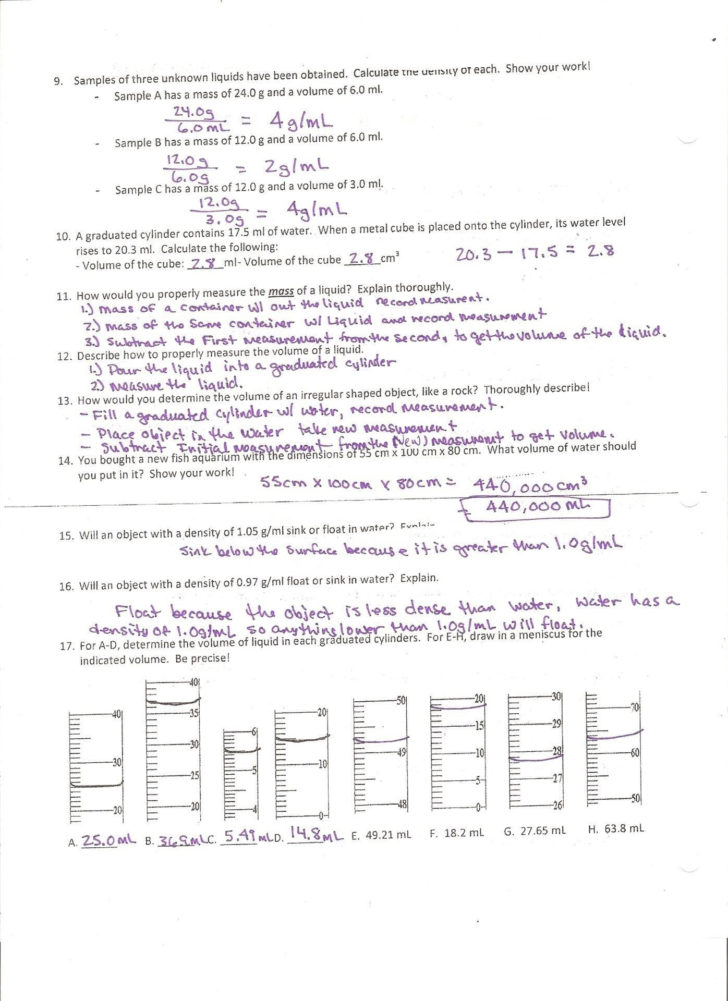 9. Samples of three unknown liquids have been obtained. Calculate the density of each. Show your work!
- Sample A has a mass of 24.0 g and a volume of 6.0 ml.
24.0g
6.0 mL = 4g/mL
- Sample B has a mass of 12.0 g and a volume of 6.0 ml.
12.0g
6.0g = 2g/mL
- Sample C has a mass of 12.0 g and a volume of 3.0 ml.
12.0g
3.0g = 4g/mL
10. A graduated cylinder contains 17.5 ml of water. When a metal cube is placed onto the cylinder, its water level
rises to 20.3 ml. Calculate the following:
20.3 - 17.5 = 2.8
- Volume of the cube: 2.8 ml- Volume of the cube 2.8 cm³
11. How would you properly measure the mass of a liquid? Explain thoroughly.
1.) mass of a container w/ out the liquid record measurent.
2.) mass of the same container w/ Liquid and record measurement
3.) Subtract the First measurement from the second, to get the volume of the liquid.
12. Describe how to properly measure the volume of a liquid.
1.) Pour the liquid into a graduated cylinder
2) measure the liquid.
13. How would you determine the volume of an irregular shaped object, like a rock? Thoroughly describe!
- Fill a graduated cylinder w/ water, record measurement.
- Place object in the water take new measurement
- Subtract Initial measurement from the (New) measurement to get volume.
14. You bought a new fish aquarium with the dimensions of 55 cm x 100 cm x 80 cm. What volume of water should
you put in it? Show your work!
55cm x 100cm x 80cm = 440,000 cm³
440,000 mL
15. Will an object with a density of 1.05 g/ml sink or float in water? Explain
Sink below the surface because it is greater than 1.0g/mL
16. Will an object with a density of 0.97 g/ml float or sink in water? Explain.
Float because the object is less dense than water, water has a
density of 1.0g/mL so anything lower than 1.0g/mL will float.
17. For A-D, determine the volume of liquid in each graduated cylinders. For E-H, draw in a meniscus for the
indicated volume. Be precise!
40 30 20
40 35 30 25 20
6 5 4
20 10 0
50 49 48
20 15 10 5 0
30 29 28 27 26
70 60 50
A. 25.0 mL B. 36.9 mL C. 5.41 mL D. 14.8 mL E. 49.21 mL F. 18.2 mL G. 27.65 mL H. 63.8 mL